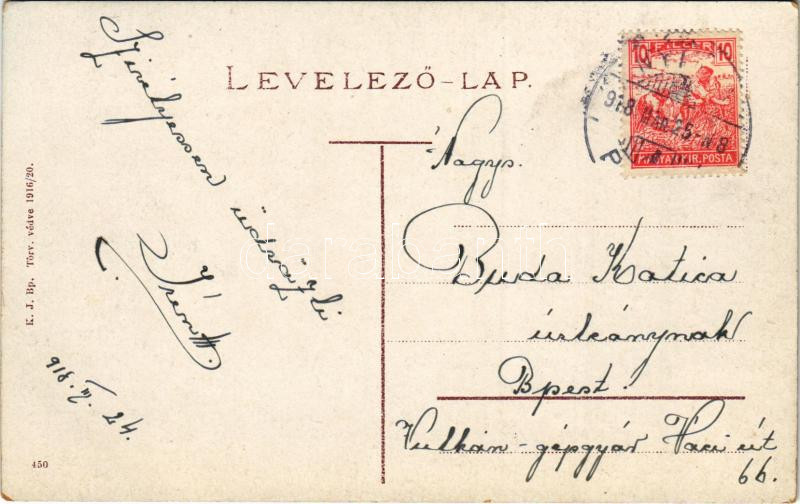 LEVELEZŐ-LAP.
Szivélyessen
üdvözli
Irén
918. III. 24.
K. J. Bp. Törv. védve 1916/20.
450
10 FILLÉR 10
918 25
MAGYAR KIR. POSTA
Nagys.
Buda Katica
úrleánynak
Bpest.
Vulkán-gépgyár Váci út
66.
darabanth